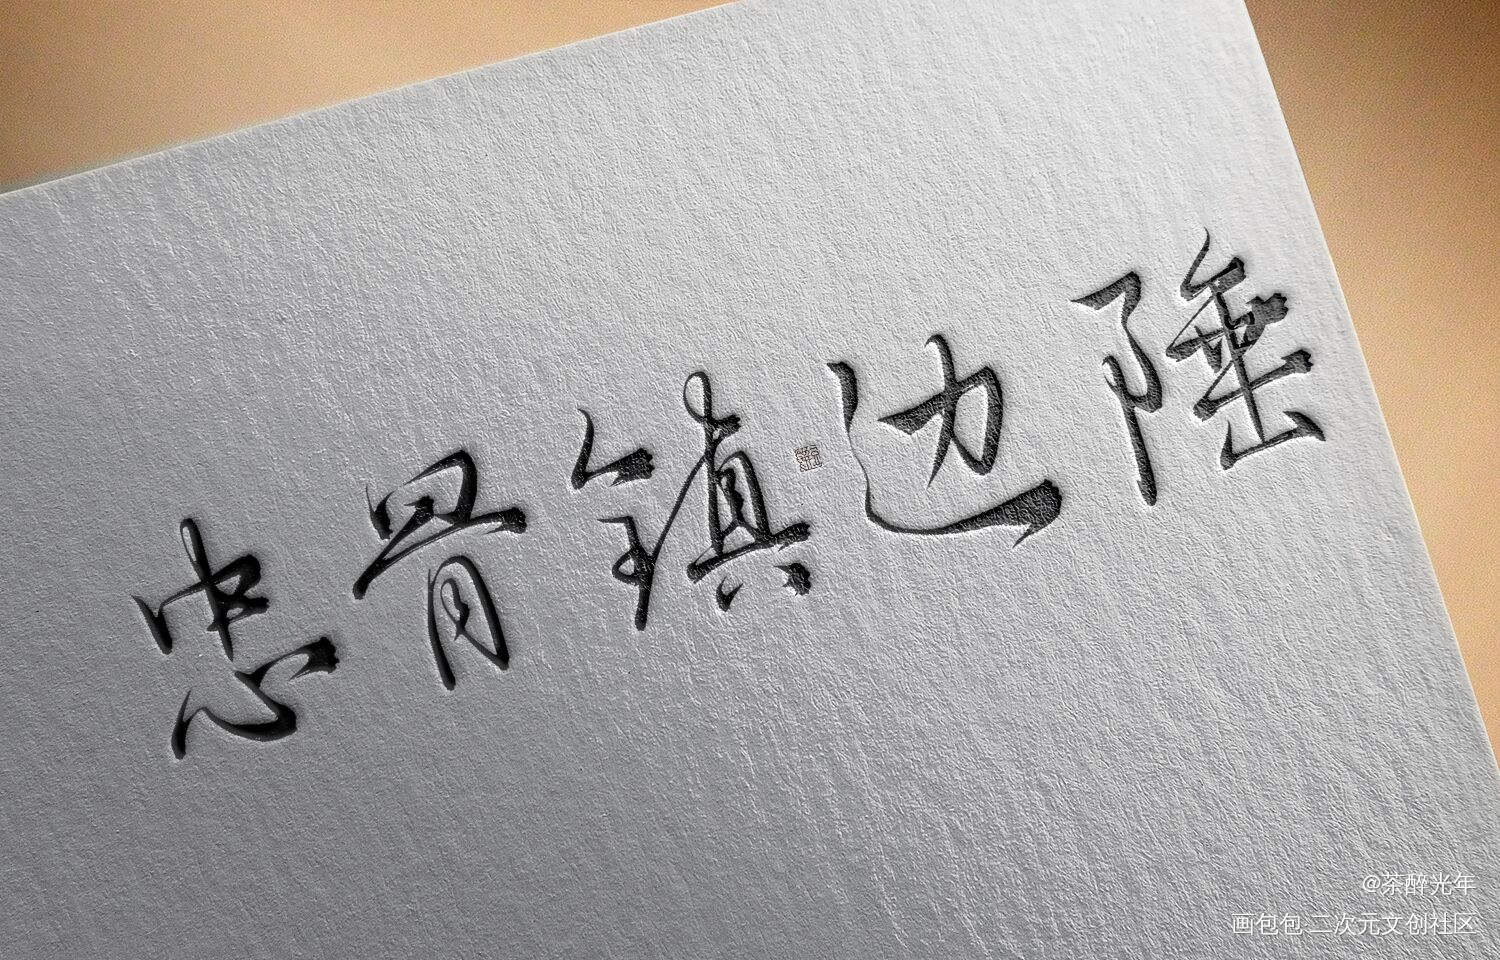 忠骨镇边陲
@茶醉光年
画包包·二次元文创社区